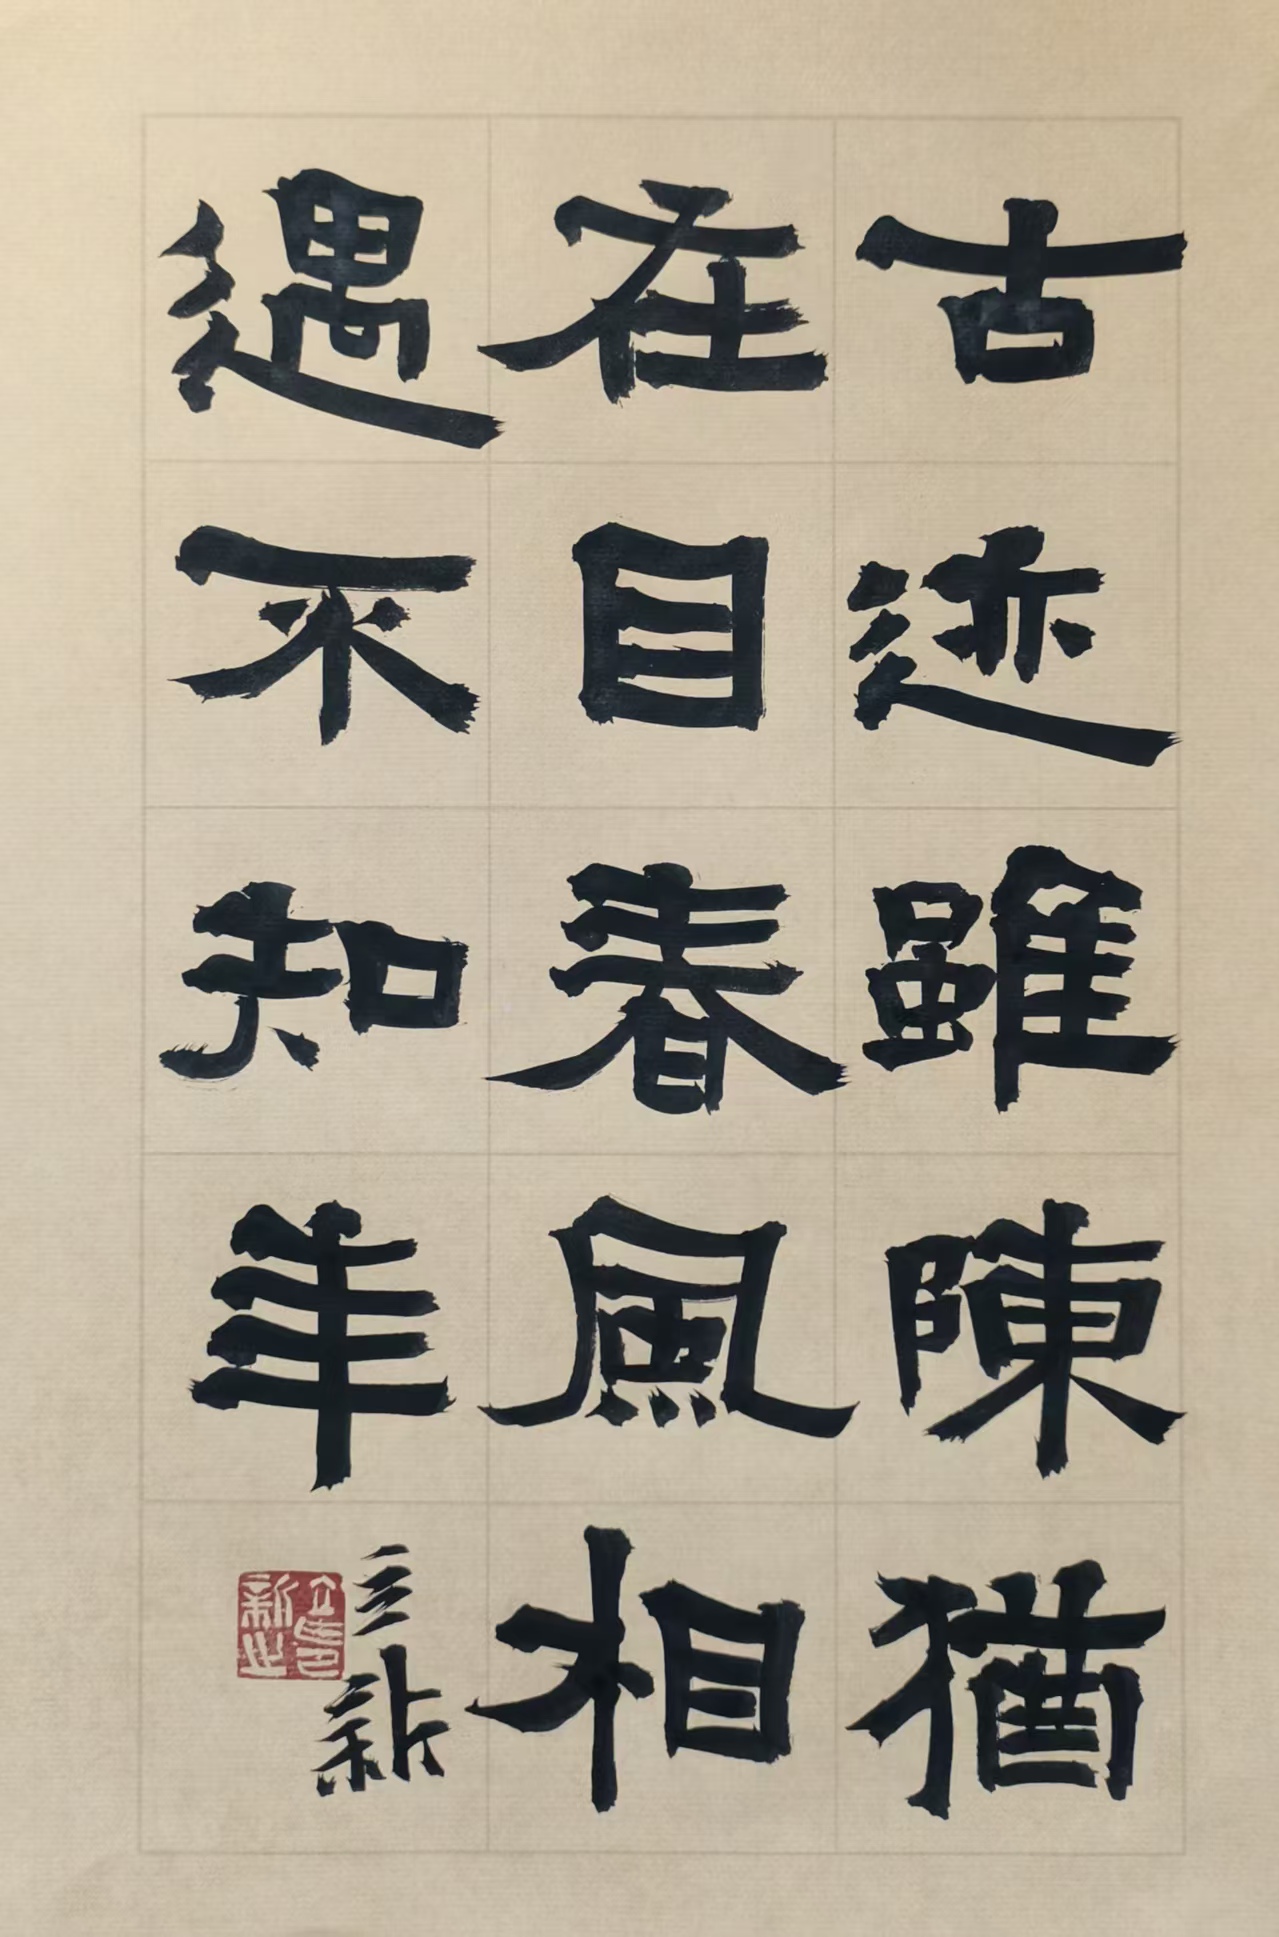 古迹雖陳猶
在目春風相
遇不知年
立新
立馬
新也